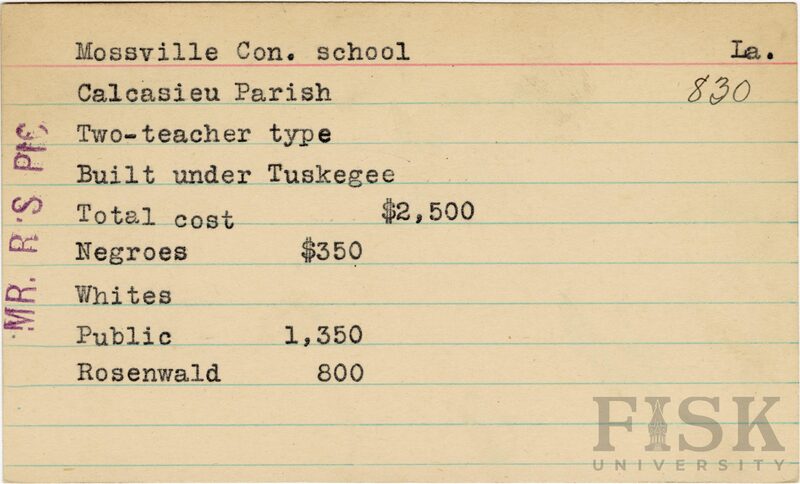 Mossville Con. school La.
Calcasieu Parish 830
Two-teacher type
Built under Tuskegee
Total cost $2,500
Negroes $350
Whites
Public 1,350
Rosenwald 800
MR. R'S PIC
FISK
UNIVERSITY